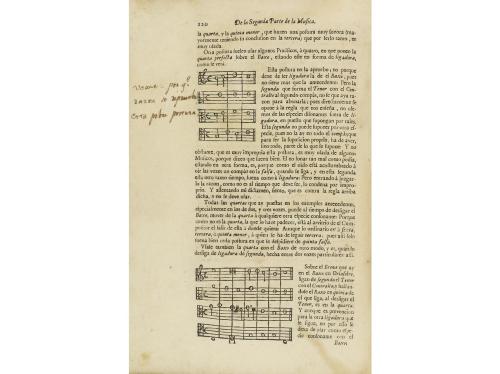 220 De la Segunda Parte de la Musica.
la quarta, y la quinta menor, que hazen una postura muy sonora (ma-
yormente teniendo su conclusion en la tercera) que por serlo tanto, es
muy usada.
Otra postura suelen usar algunos Practicos, à quatro, en que ponen la
quarta perfecta sobre el Baxo, estando este en forma de ligadura,
como lo veràs.
Esta postura no la apruebo; no porque
dexe de ser ligadura la de el Baxo, pues
no tiene mas que la antecedente: Pero la
segunda que forma el Tenor con el Con-
tralto al segundo compàs, no sè que aya ra-
zon para abonarla; pues directamente se
opone à la regla que nos enseña, no de-
mos de las especies disonantes fuera de li-
gadura, en puesto que supongan por tales.
Esta segunda no puede suponer por otro es-
puesto, pues no la ay en todo el compàs
para ser la suposicion propria, ha de aver,
sino todo, parte de lo que se supone Y no
obstante, que es muy impropria esta postura, es muy usada de algunos
Musicos, porque dizen que suena bien. El no sonar tan mal como podia,
estando en otra forma, es, porque como el oìdo està acostumbrado à
oìr las vozes en compàs en la falsa, quando se liga, y en esta segunda
està otro tanto tiempo, suena como à ligadura: Pero entrando à juzgar-
lo la razon, como no es al tiempo que deve ser, lo condena por impro-
prio. Y assentando mi dictamen, siento, que es contra la regla arriba
dicha, y no se deve usar.
Todas las quartas que ay puestas en los exemplos antecedentes,
especialmente en los de dos, y tres vozes, puede al tiempo de desligar el
Baxo, mover de la quarta à qualquiera otra especie consonante: Porque
como no es la quarta, la que lo haze padecer, està al arvitrio de el Com-
positor el salir de ella à donde quisiere Aunque lo ordinario es à sexta,
tercera, ò quinta menor, à quien le ha de seguir tercera; pues assi solo
forma bien esta postura en que se despidiere de quinta falsa.
Vsase tambien la quarta con el Baxo de otro modo, y es, quando
desliga de ligadura de segunda, hecha entre dos vozes particulares assi.
Sobre el Breve que ay
en el Baxo en Desolrre,
ligan de segunda el Tenor
con el Contralto: hallan-
dose el Baxo en quinta de
el que liga, al desligar el
Tenor, es en la quarta.
Y aunque es prevencion
para la otra ligadura que
se sigue, no por esso se
dexa de usar como espe-
cie consonante con el
Baxo